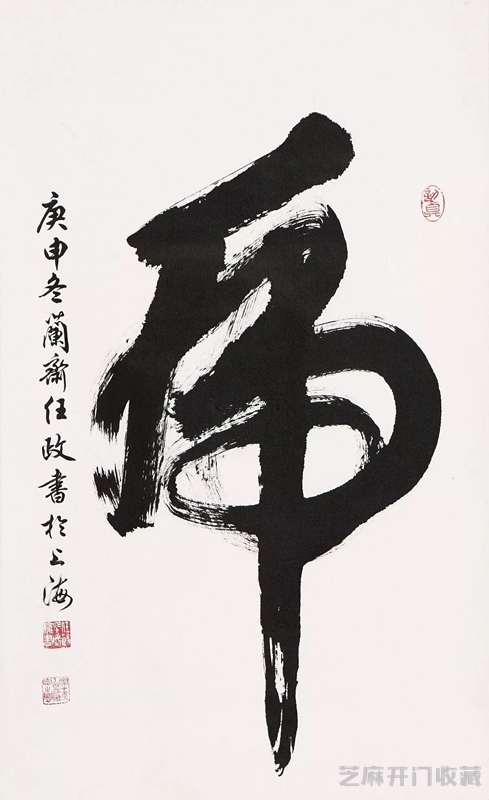 虎
庚申冬蘭齋任政書於上海
芝麻开门收藏